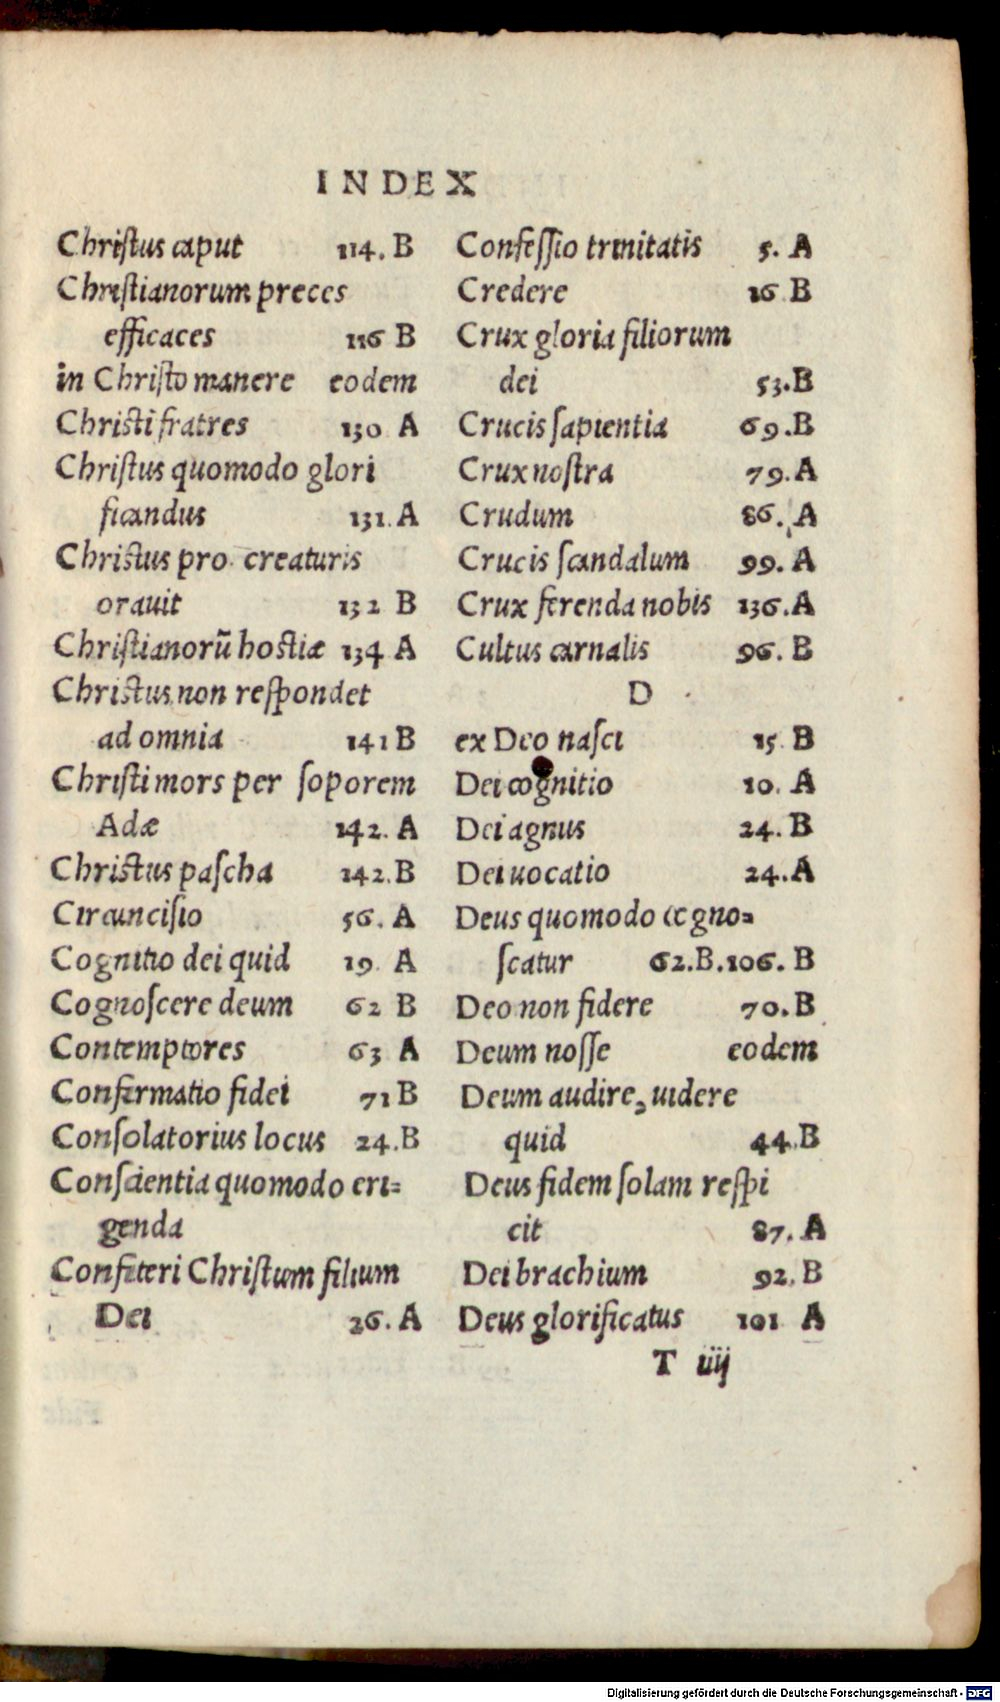 INDEX
Christus caput 114. B
Christianorum preces
efficaces 116 B
in Christo manere eodem
Christi fratres 130 A
Christus quomodo glori
ficandus 131. A
Christus pro creaturis
orauit 132 B
Christianorũ hostiæ 134 A
Christus non respondet
ad omnia 141 B
Christi mors per soporem
Adæ 142. A
Christus pascha 142. B
Circuncisio 56. A
Cognitio dei quid 19 A
Cognoscere deum 62 B
Contemptores 63 A
Confirmatio fidei 71 B
Consolatorius locus 24. B
Conscientia quomodo eri=
genda
Confiteri Christum filium
Dei 26. A
Confessio trinitatis 5. A
Credere 16 B
Crux gloria filiorum
dei 53. B
Crucis sapientia 69. B
Crux nostra 79. A
Crudum 86. A
Crucis scandalum 99. A
Crux ferenda nobis 136. A
Cultus carnalis 96. B
D
ex Deo nasci 15 B
Dei cognitio 10. A
Dei agnus 24. B
Dei uocatio 24. A
Deus quomodo cogno=
scatur 62. B. 106. B
Deo non fidere 70. B
Deum nosse eodem
Deum audire, uidere
quid 44. B
Deus fidem solam respi
cit 87. A
Dei brachium 92. B
Deus glorificatus 101 A
T iiij
Digitalisierung gefördert durch die Deutsche Forschungsgemeinschaft - DFG